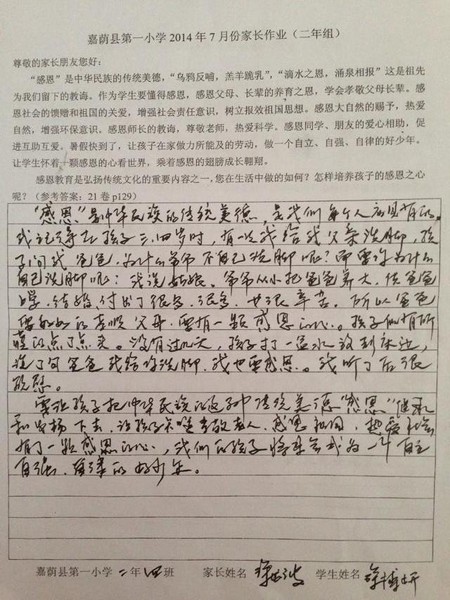 嘉荫县第一小学2014年7月份家长作业（二年组）
尊敬的家长朋友您好：
“感恩”是中华民族的传统美德，“乌鸦反哺，羔羊跪乳”，“滴水之恩，涌泉相报”这是祖先
为我们留下的教诲。作为学生要懂得感恩，感恩父母、长辈的养育之恩，学会孝敬父母长辈。感
恩社会的馈赠和祖国的关爱，增强社会责任意识，树立报效祖国思想。感恩大自然的赐予，热爱
自然，增强环保意识。感恩师长的教诲，尊敬老师，热爱科学。感恩同学、朋友的爱心相助，促
进互助互爱。暑假快到了，让孩子在家做力所能及的劳动，做一个自立、自强、自律的好少年。
让学生怀着一颗感恩的心看世界，乘着感恩的翅膀成长翱翔。
感恩教育是弘扬传统文化的重要内容之一，您在生活中做的如何？怎样培养孩子的感恩之心
呢？（参考答案：21卷p129）
“感恩”是中华民族的传统美德，是我们每个人应具有的。
我记得在孩子三、四岁时，有一次我给我父亲洗脚，孩
子问我，爸爸，为什么爷爷不自己洗脚呢？
自己洗脚呢？我说姑娘。爷爷从小把爸爸养大，供爸爸
上学，结婚，付出了很多、很多，也很辛苦，所以爸爸
要好好的孝顺父母，要有一颗感恩的心。孩子似有所
懂的点了点头。没有过几天，孩子打一盆水放到床边，
说了句爸爸我给你洗脚，我也要感恩。我听了后很
欣慰。
要让孩子把中华民族的这种传统美德“感恩”继承
和发扬下去，让孩子知道孝敬老人，感恩祖国，热爱社会
有了一颗感恩的心，我们的孩子将来会成为一个自立
自强、自律的好少年。
嘉荫县第一小学二年四班 家长姓名 学生姓名